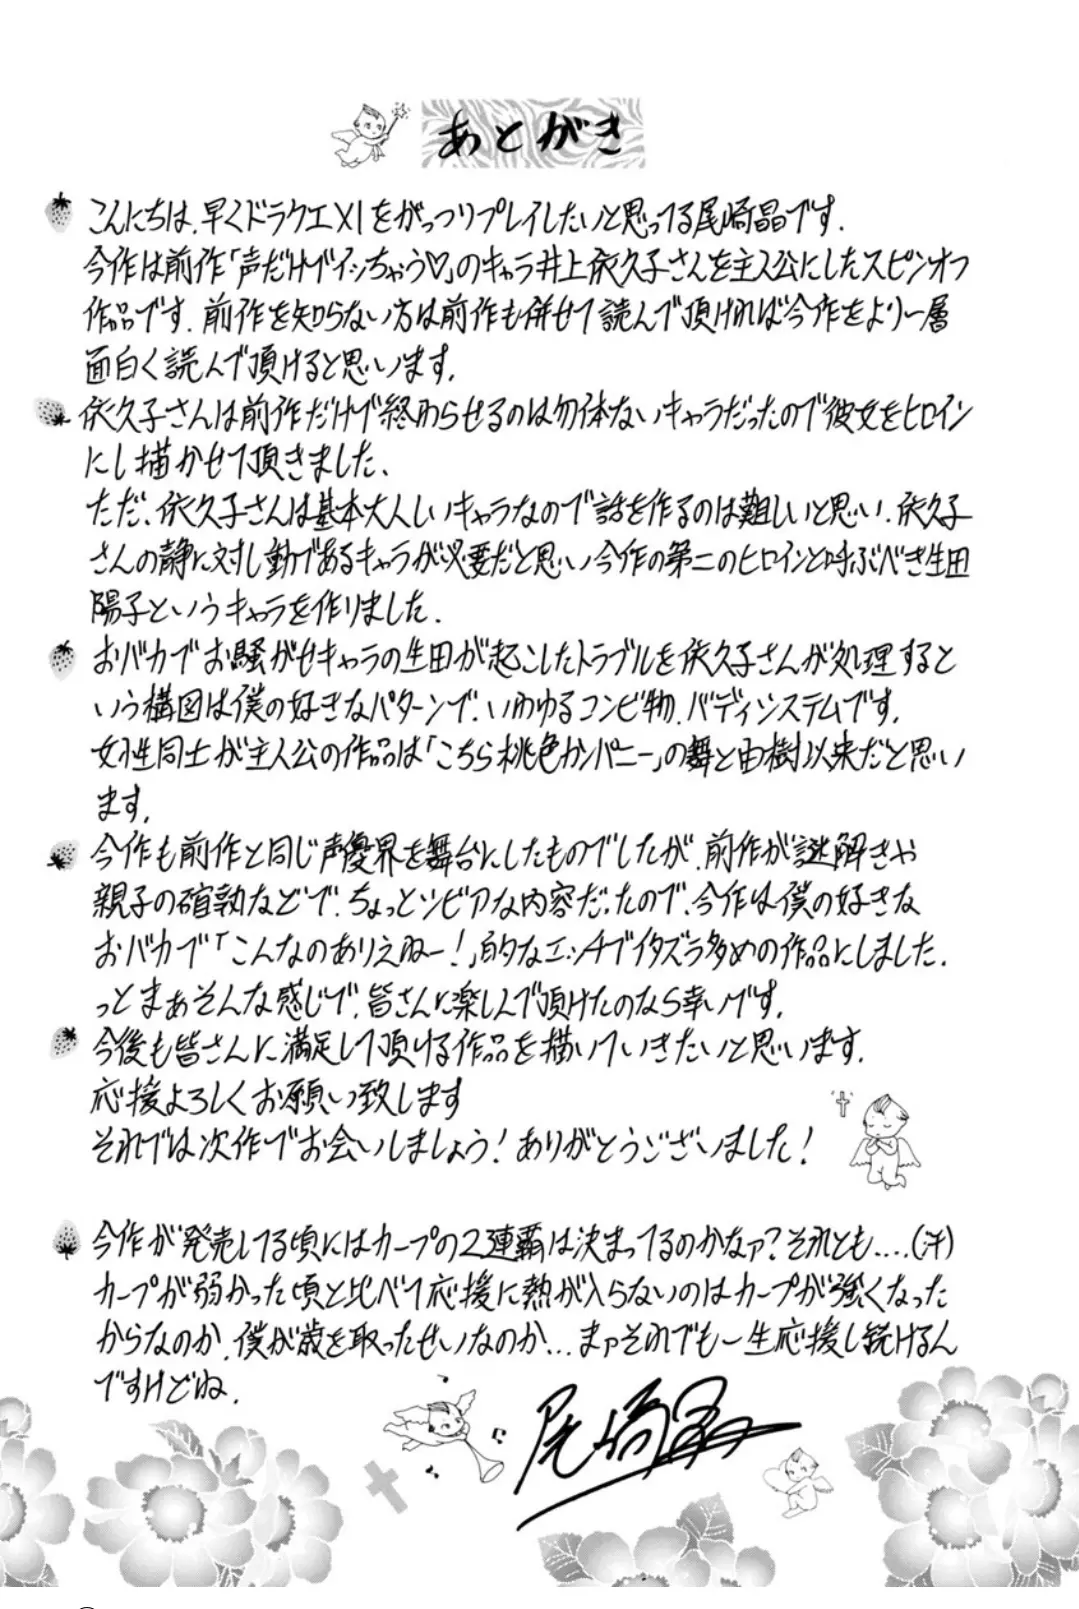 あとがき
こんにちは、早くドラクエXIをがっつりプレイしたいと思ってる尾崎晶です.
今作は前作「声だけでイッちゃう♡」のキャラ井上依久子さんを主人公にしたスピンオフ
作品です. 前作を知らない方は前作も併せて読んで頂ければ今作をより一層
面白く読んで頂けると思います.
依久子さんは前作だけで終わらせるのは勿体ないキャラだったので彼女をヒロイン
にし描かせて頂きました、
ただ、依久子さんは基本大人しいキャラなので話を作るのは難しいと思い、依久子
さんの静に対し動であるキャラが必要だと思い今作の第二のヒロインと呼ぶべき生田
陽子というキャラを作りました.
おバカでお騒がせキャラの生田が起こしたトラブルを依久子さんが処理すると
いう構図は僕の好きなパターンで、いわゆるコンビ物、バディシステムです.
女性同士が主人公の作品は「こちら桃色カンパニー」の舞と由樹以来だと思い
ます.
今作も前作と同じ声優界を舞台にしたものでしたが、前作が謎解きや
親子の確執などで、ちょっとシビアな内容だったので、今作は僕の好きな
おバカで「こんなのありえねー!」的なエッチでイタズラ多めの作品にしました.
っとまぁそんな感じで、皆さんに楽しんで頂けたのなら幸いです.
今後も皆さんに満足して頂ける作品を描いていきたいと思います.
応援よろしくお願い致します
それでは次作でお会いしましょう! ありがとうございました!
今作が発売してる頃にはカープの2連覇は決まってるのかなァ?それとも....(汗)
カープが弱かった頃と比べて応援に熱が入らないのはカープが強くなった
からなのか、僕が歳を取ったせいなのか...まァそれでも一生応援し続けるん
ですけどね.
尾崎晶